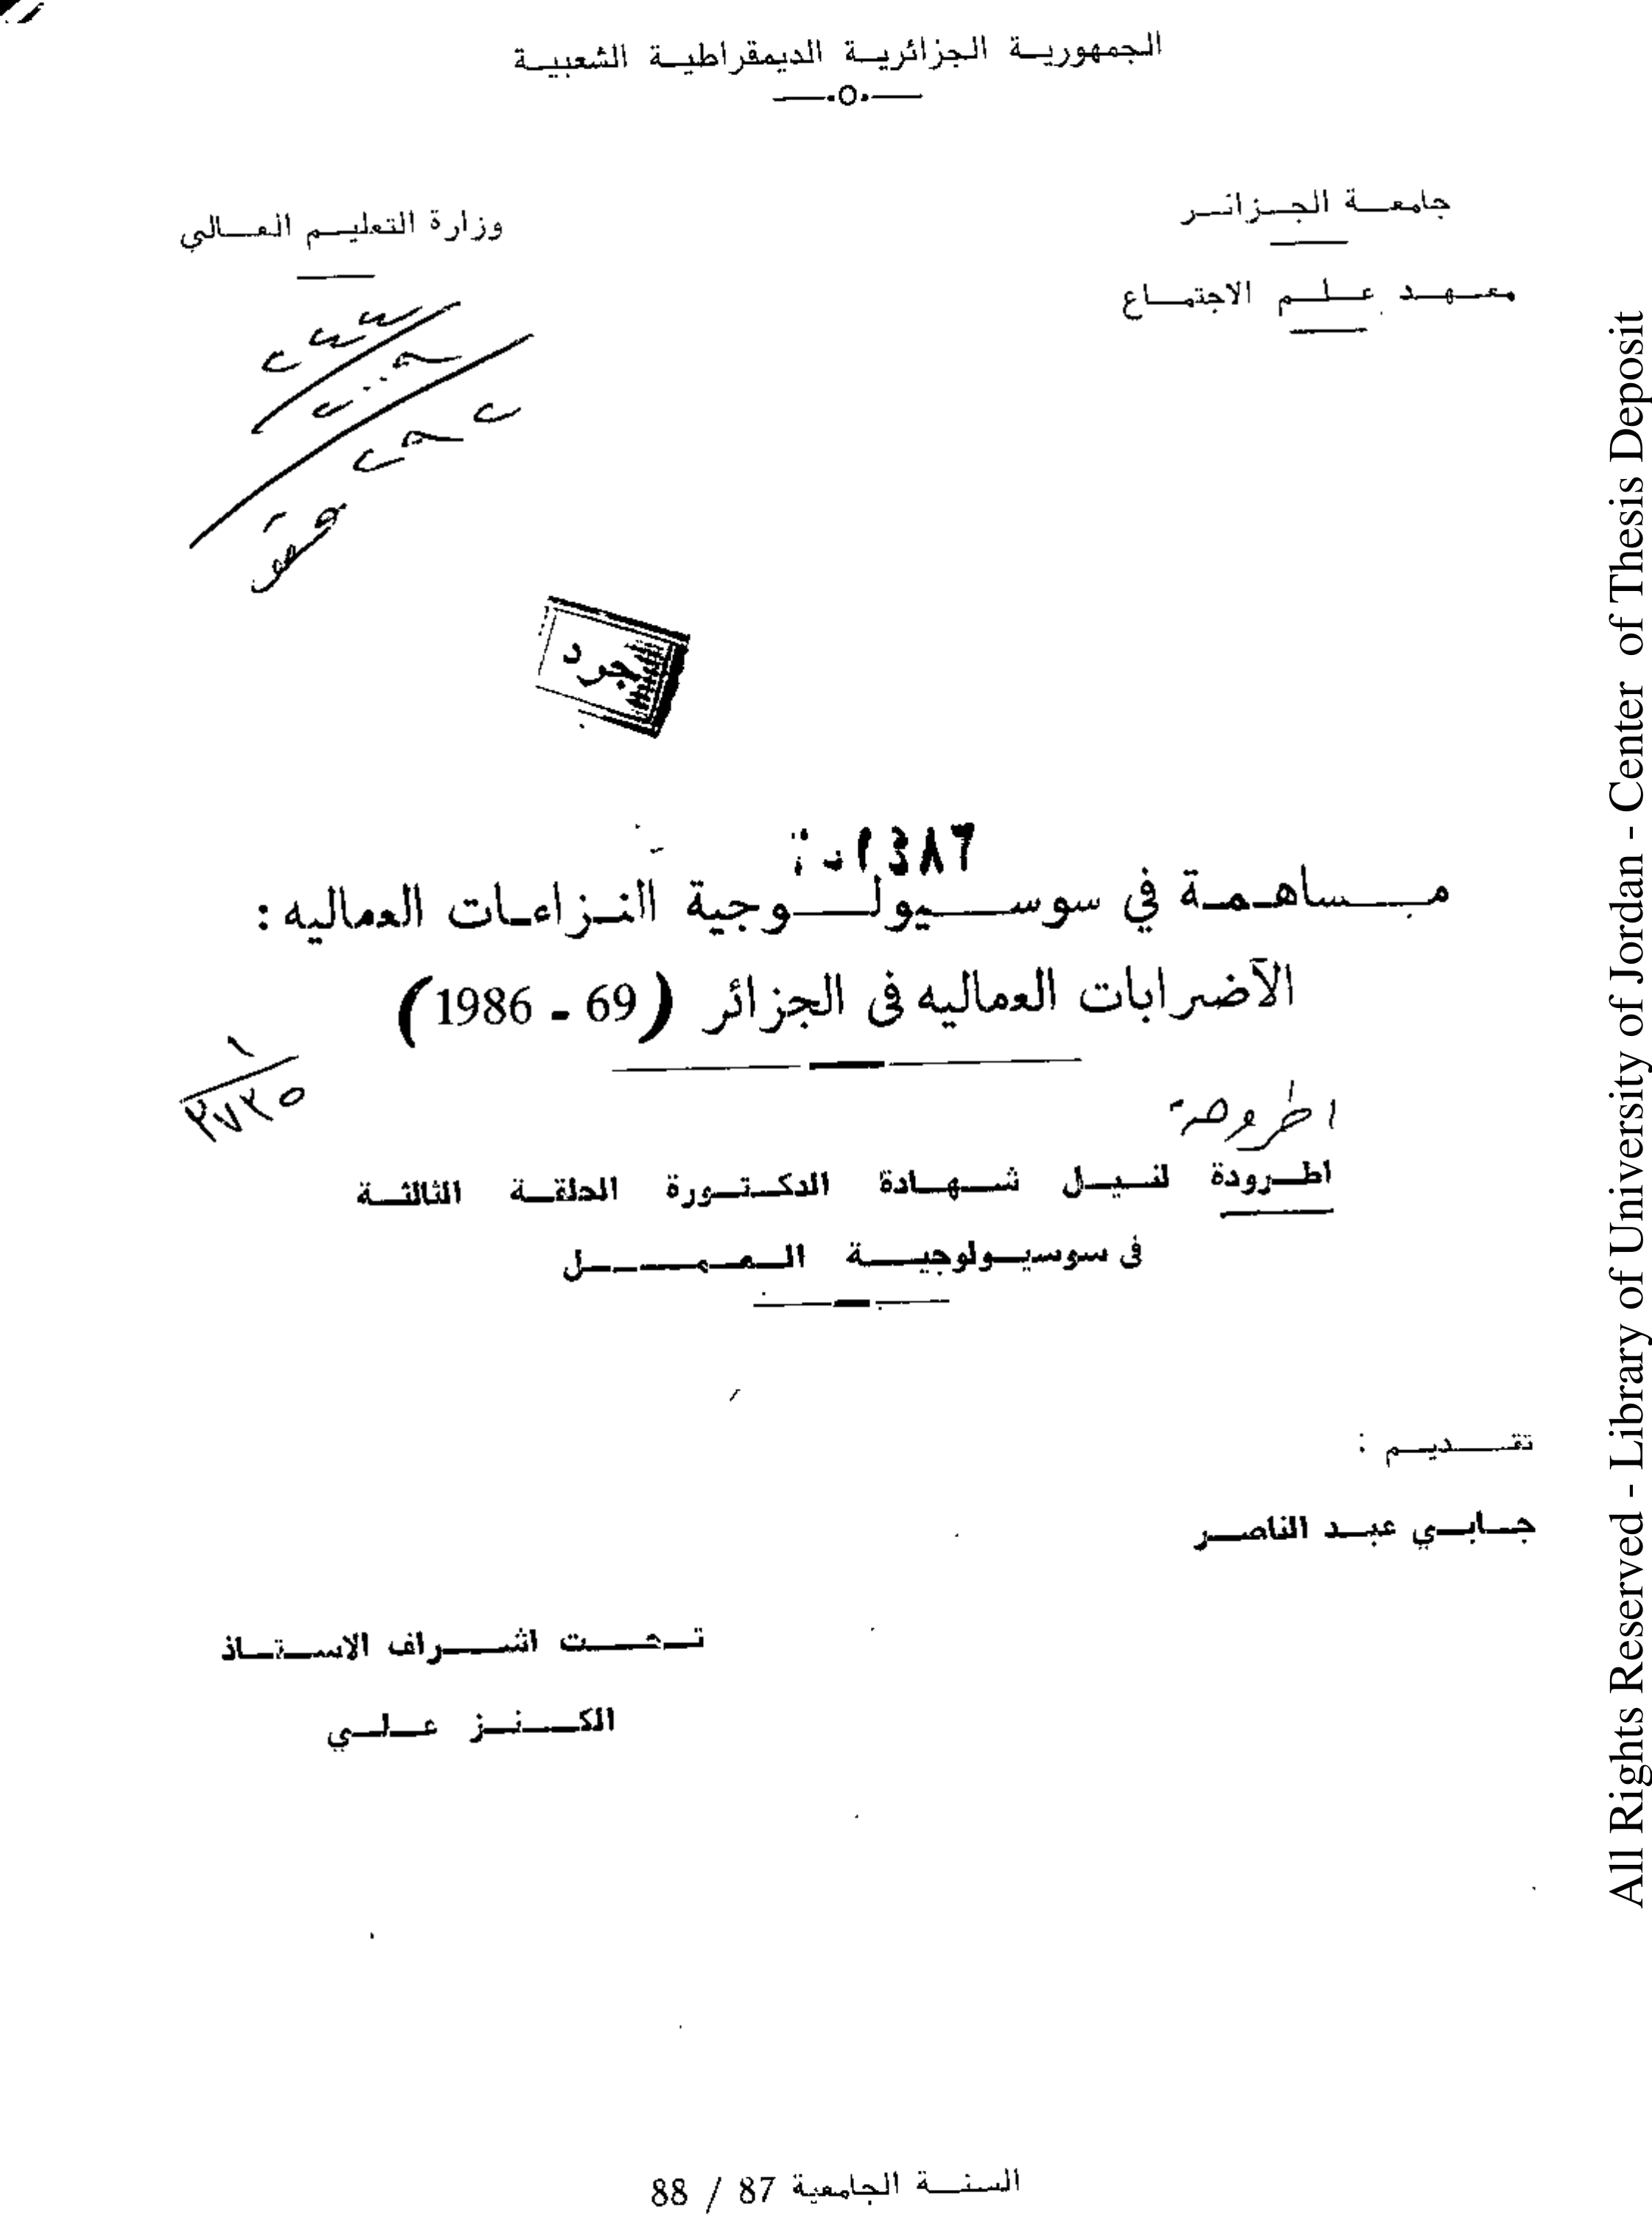 الجمهورية الجزائرية الديمقراطية الشعبية
جامعة الجزائر
وزارة التعليم العالي
معهد علم الاجتماع
جرد
مساهمة في سوسيولوجية النزاعات العماليه :
الآضرابات العماليه فى الجزائر (69 - 1986)
٢٧٣٥
اطروحة
اطرودة لنيل شهادة الدكتورة الحلقة الثالثة
فى سوسيولوجية العمل
تقديم :
جابي عبد الناصر
تحت اشراف الاستاذ
الكنز علي
السنة الجامعية 87 / 88
All Rights Reserved - Library of University of Jordan - Center of Thesis Deposit